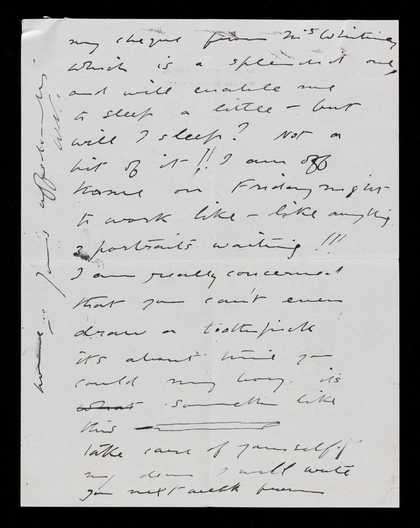 my cheque from Mrs Whitney
which is a splendid one,
and will enable me
to sleep a little – but
will I sleep? Not a
bit of it!! I am off
home on Friday night
to work like – like anything
3 portraits waiting!!!
I am really concerned
that you can't even
draw a toothpick
its about time you
could my boy. its
what something like
this
take care of yourself
my dear I will write
you next week from
home. Yours affectionately